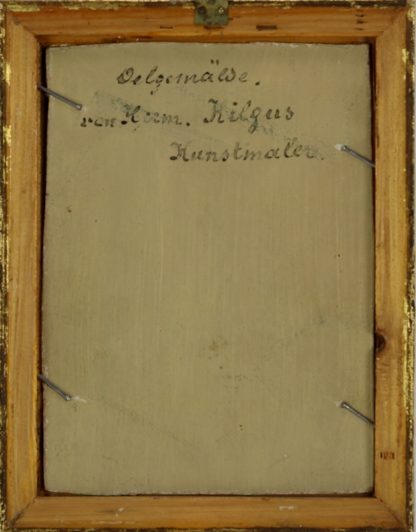 Oelgemälde.
von Herm. Kilgus
Kunstmaler.